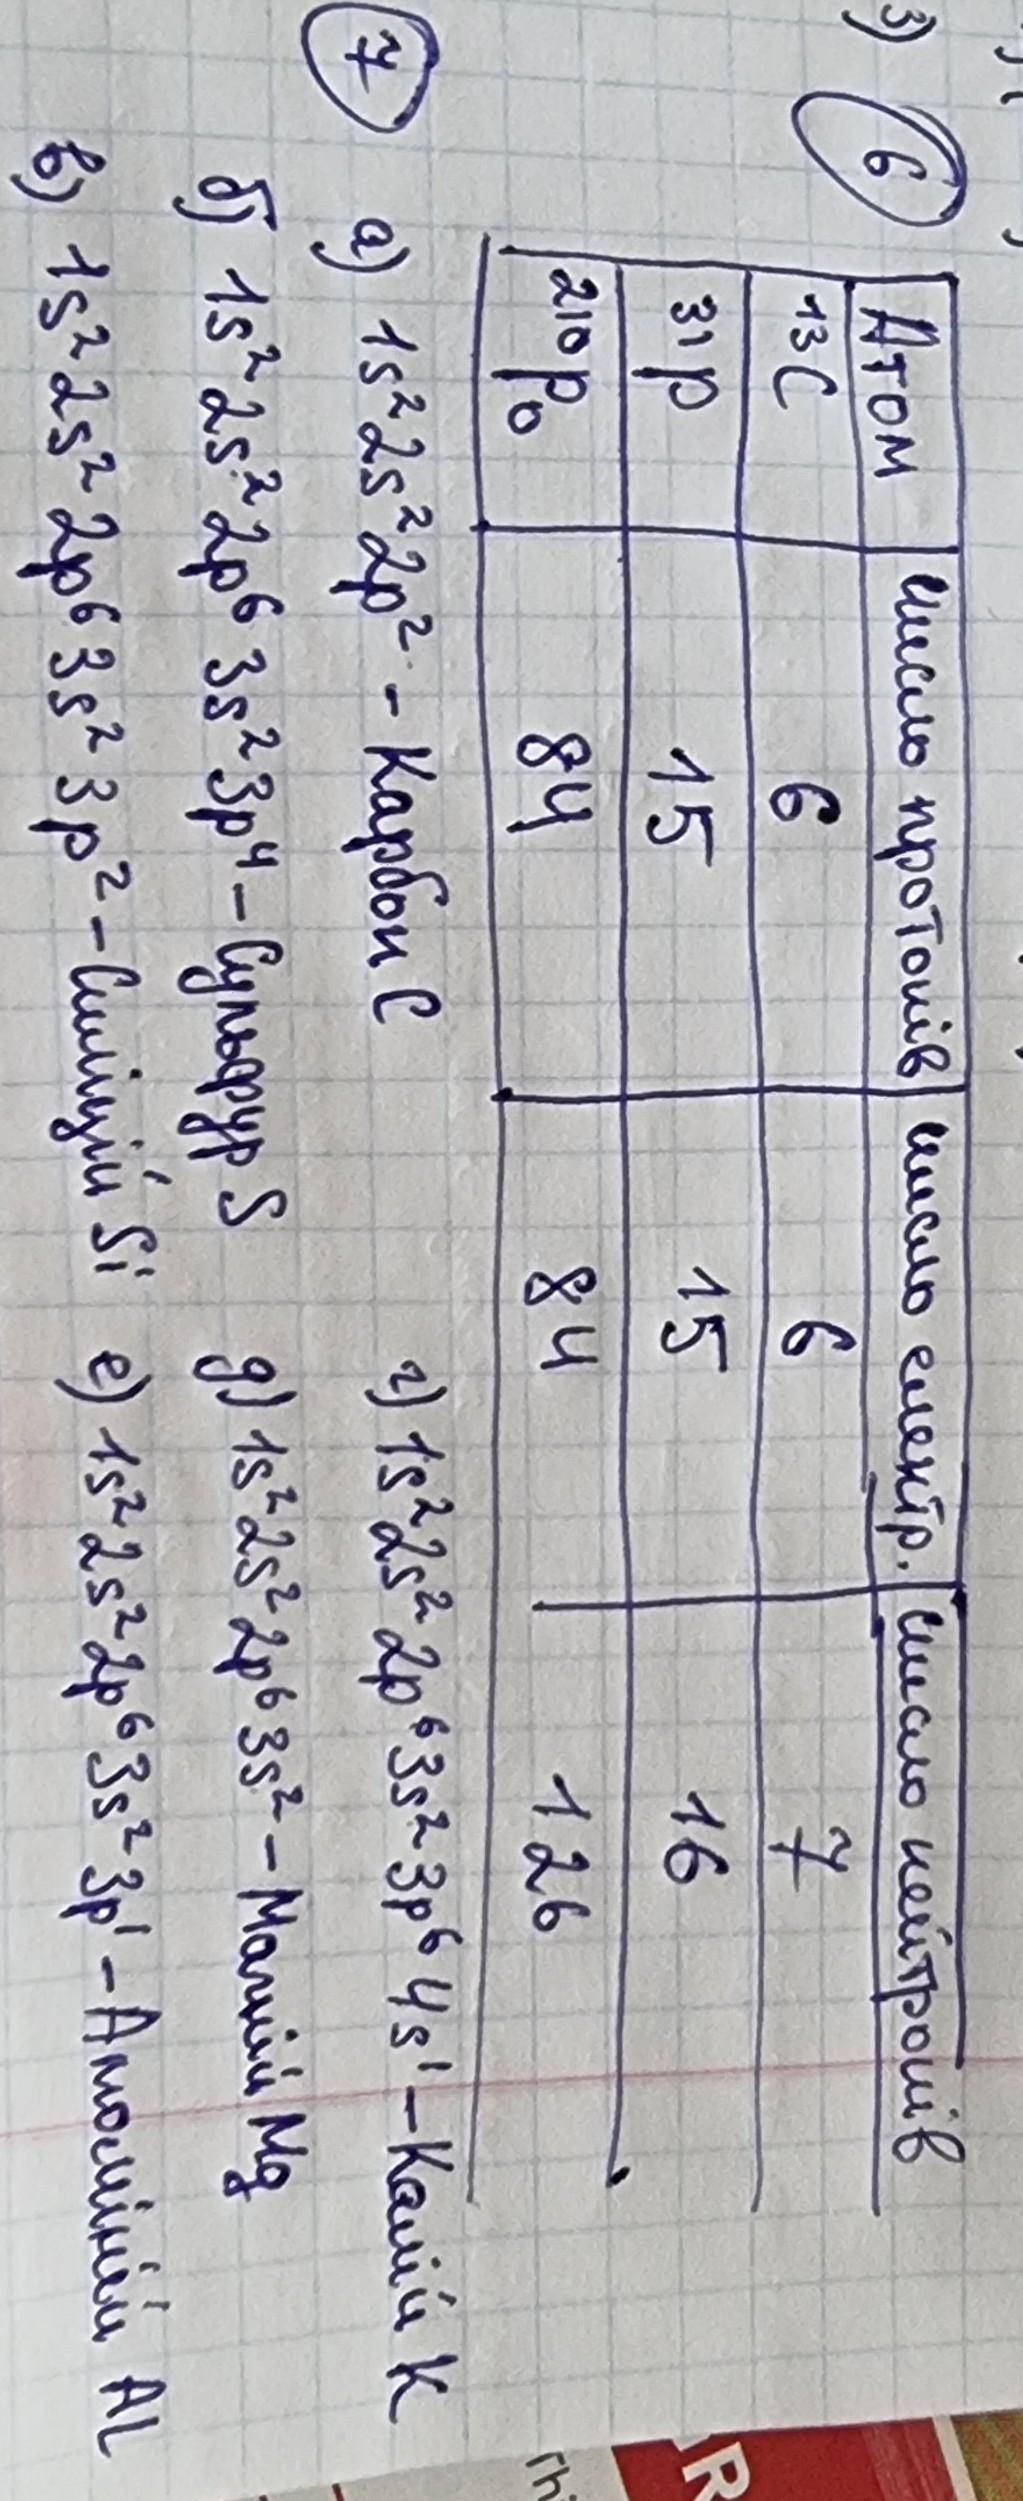 3)
6
Атом число протонів число електр. число нейтронів
¹³C 6 6 7
³¹P 15 15 16
²¹⁰Po 84 84 126
7
а) 1s² 2s² 2p² - Карбон C
г) 1s² 2s² 2p⁶ 3s² 3p⁶ 4s¹ - Калій K
б) 1s² 2s² 2p⁶ 3s² 3p⁴ - Сульфур S
д) 1s² 2s² 2p⁶ 3s² - Магній Mg
в) 1s² 2s² 2p⁶ 3s² 3p² - Силіцій Si
е) 1s² 2s² 2p⁶ 3s² 3p¹ - Алюміній Al